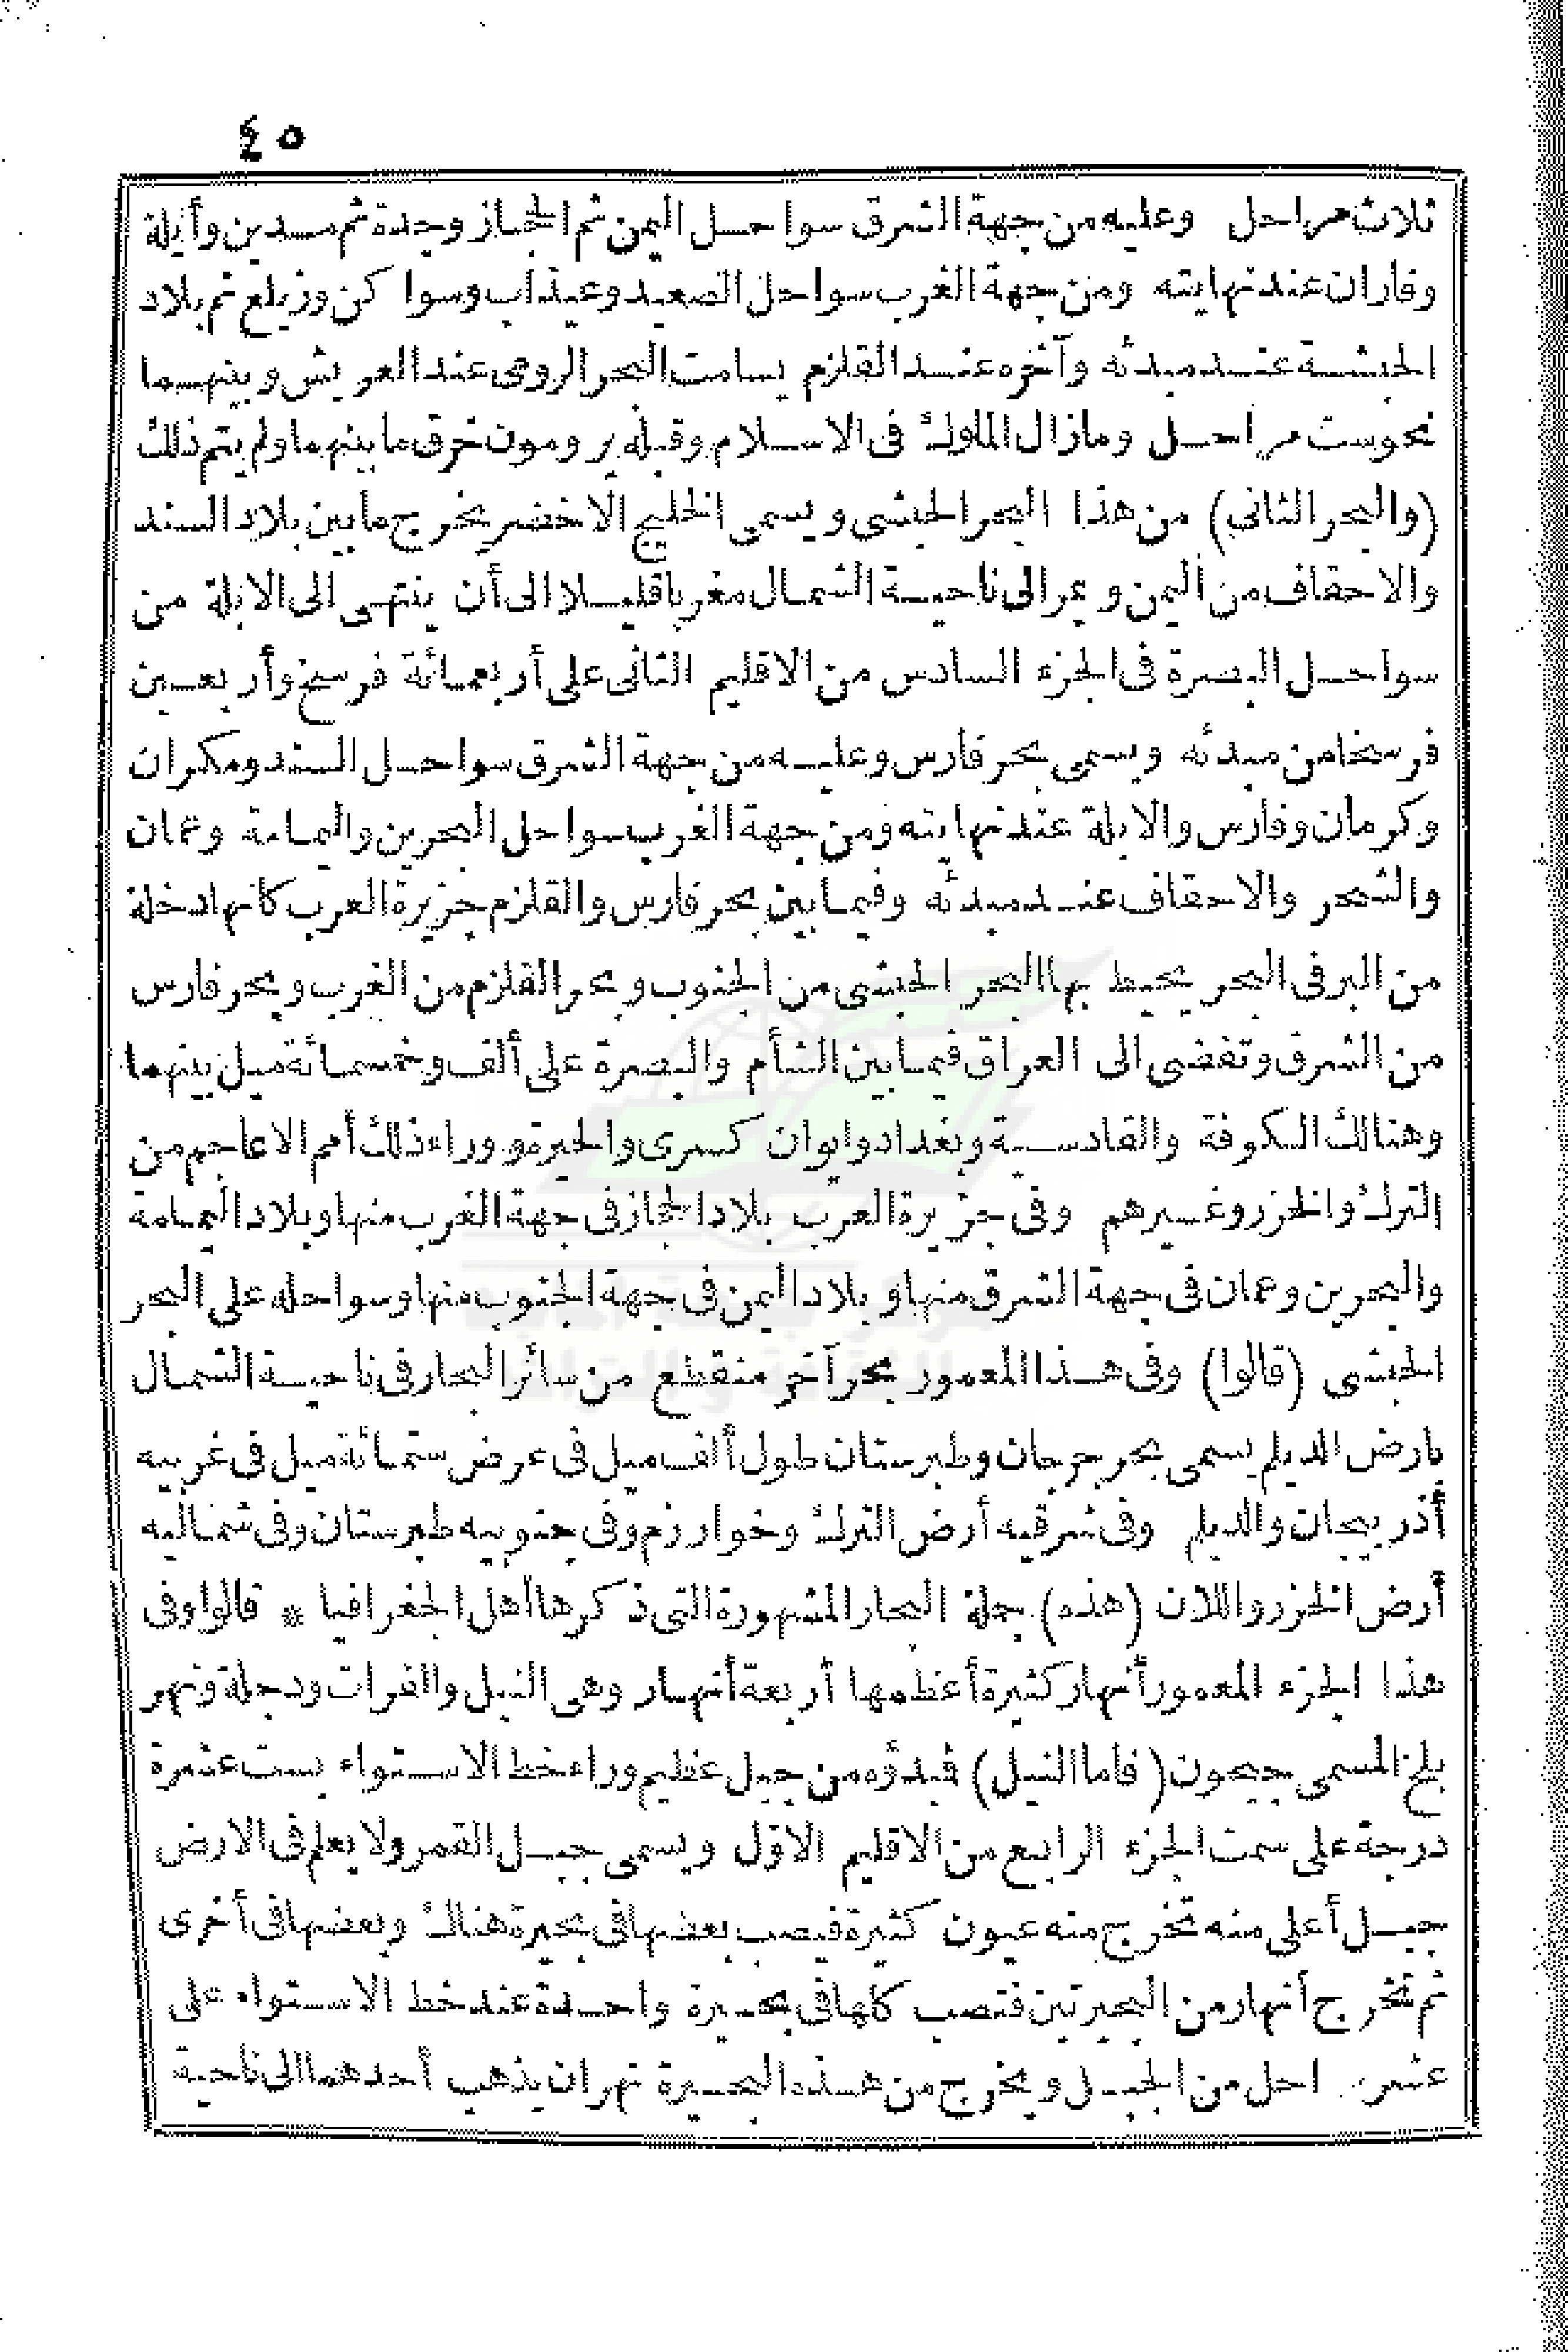 ٤٥
ثلاث مراحل وعليه من جهة الشرق سواحل اليمن ثم الحجاز وجدة ثم مدين وأيلة
وفاران عند نهايته ومن جهة الغرب سواحل الصعيد وعيذاب وسواكن وزيلع ثم بلاد
الحبشة عند مبدئه وآخره عند القلزم يسامت البحر الرومى عند العريش وبينهما
نحوست مراحل ومازال الملوك فى الاسلام وقبله يرومون خرق ما بينهما ولم يتم ذلك
(والبحر الثانى) من هذا البحر الحبشى ويسمى الخليج الاخضر يخرج ما بين بلاد السند
والاحقاف من اليمن ويمر الى ناحية الشمال مغربا قليلا الى أن ينتهى الى الابلة من
سواحل البصرة فى الجزء السادس من الاقليم الثانى على أربعمائة فرسخ وأربعين
فرسخا من مبدئه ويسمى بحر فارس وعليه من جهة الشرق سواحل السند ومكران
وكرمان وفارس والابلة عند نهايته ومن جهة الغرب سواحل البحرين واليمامة وعمان
والشحر والاحقاف عند مبدئه وفيما بين بحر فارس والقلزم جزيرة العرب كانها دخلة
من البر فى البحر يحيط بها البحر الحبشى من الجنوب وبحر القلزم من الغرب وبحر فارس
من الشرق وتفضى الى العراق فيما بين الشأم والبصرة على ألف وخمسمائة ميل بينهما
وهنالك الكوفة والقادسية وبغداد وايوان كسرى والحيرة ووراء ذلك أمم الاعاجم من
الترك والخزر وغيرهم وفى جزيرة العرب بلاد الحجاز فى جهة الغرب منها وبلاد اليمامة
والبحرين وعمان فى جهة الشرق منها وبلاد اليمن فى جهة الجنوب منها وسواحله على البحر
الحبشى (قالوا) وفى هذا المعمور بحر آخر منقطع من سائر البحار فى ناحية الشمال
بارض الديلم يسمى بحر جرجان وطبرستان طول ألف ميل فى عرض ستمائة ميل فى غربيه
أذربيجان والديلم وفى شرقيه أرض الترك وخوارزم وفى جنوبيه طبرستان وفى شماليه
أرض الخزر واللان (هذه) جملة البحار المشهورة التى ذكرها أهل الجغرافيا * قالوا وفى
هذا الجزء المعمور أنهار كثيرة أعظمها أربعة أنهار وهى النيل والفرات ودجلة ونهر
بلخ المسمى جيحون (فاما النيل) فبدؤه من جبل عظيم وراء خط الاستواء بست عشرة
درجة على سمت الجزء الرابع من الاقليم الاوّل ويسمى جبل القمر ولا يعلم فى الارض
جبل أعلى منه تخرج منه عيون كثيرة فيصب بعضها فى بحيرة هناك وبعضها فى أخرى
ثم تخرج أنهار من البحيرتين فتصب كلها فى بحيرة واحدة عند خط الاستواء على
عشر مراحل من الجبل ويخرج من هذه البحيرة نهران يذهب أحدهما الى ناحية